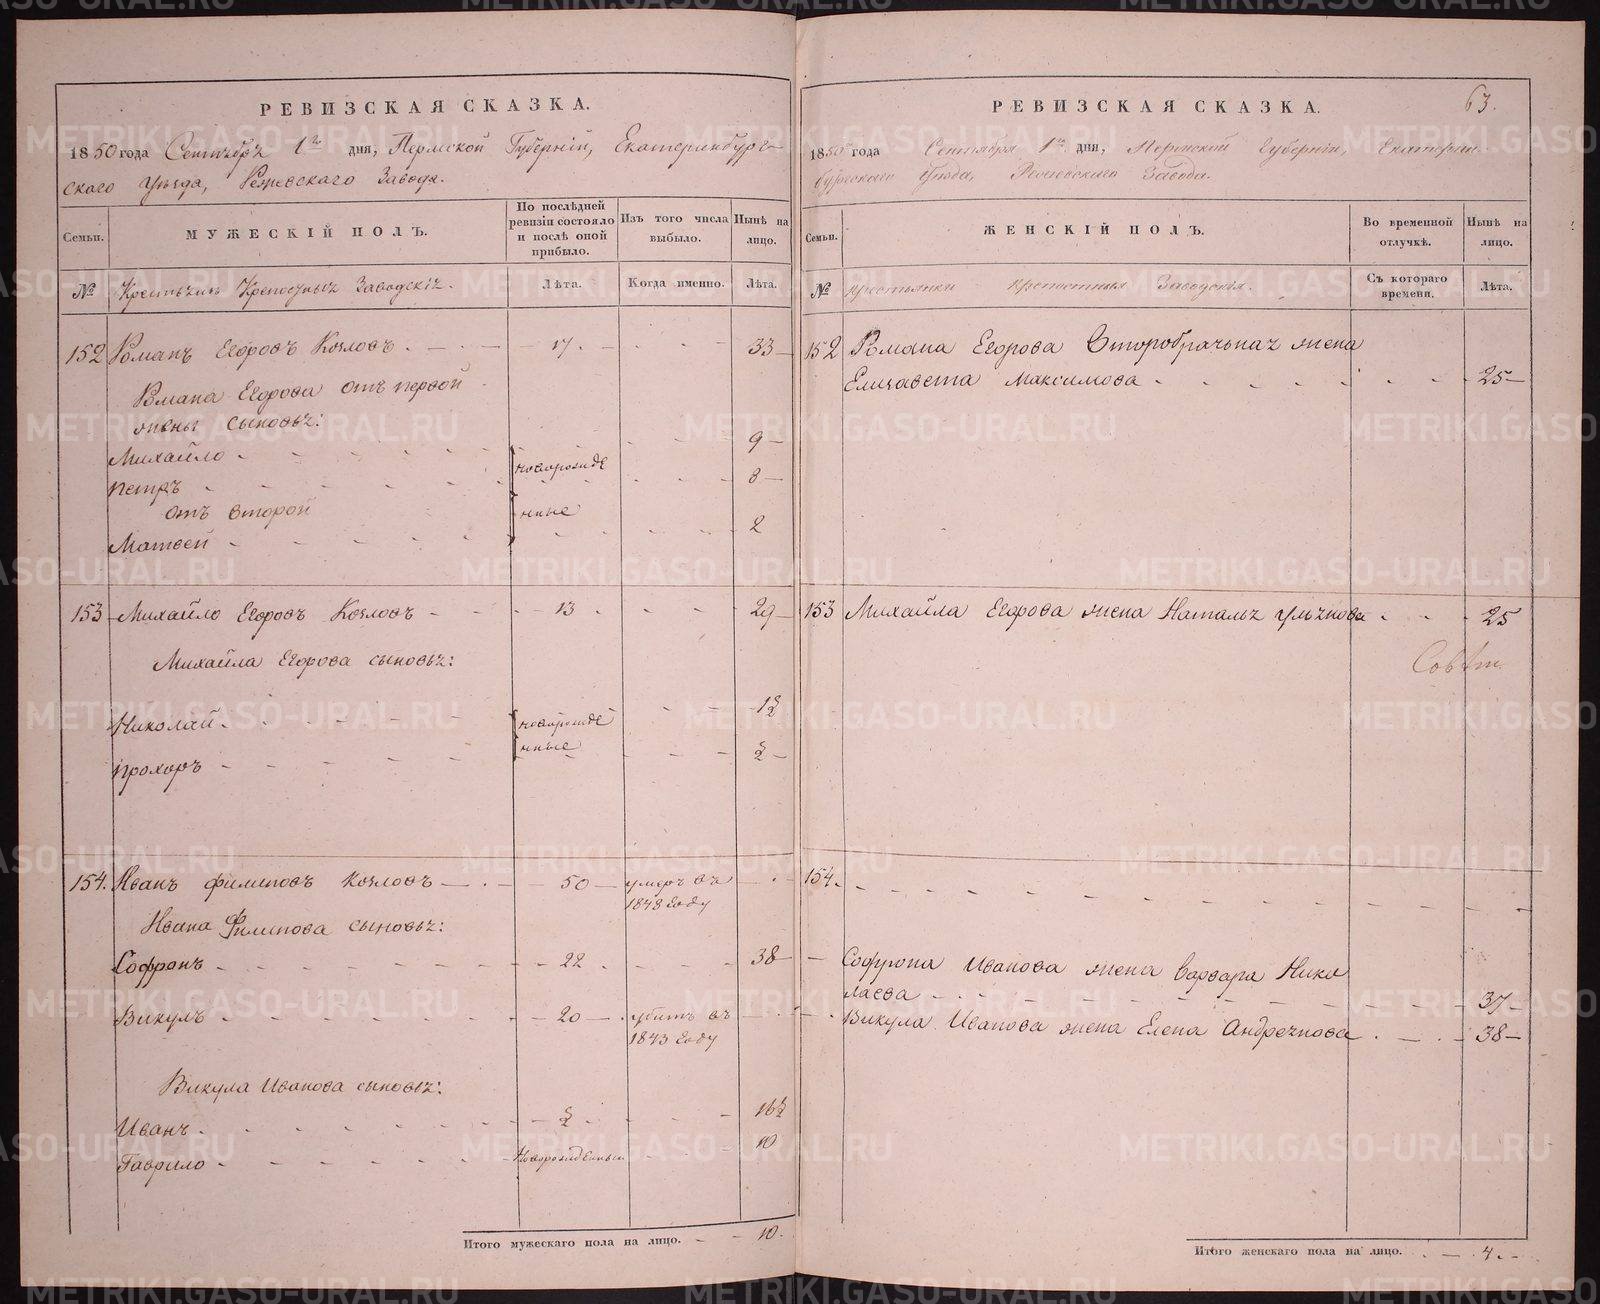 РЕВИЗСКАЯ СКАЗКА.
1850 года Сентября 1го дня, Пермской Губерніи, Екатеринбург-
скаго Уѣзда, Режевскаго Завода.
Семьи. МУЖЕСКІЙ ПОЛЪ. По послѣдней ревизіи состояло и послѣ оной прибыло. Изъ того числа выбыло. Нынѣ на лицо.
№ Крестьянъ Крепостныхъ Заводскихъ. Лѣта. Когда именно. Лѣта.
152 Романъ Егоровъ Козловъ 17. 33
Романа Егорова отъ первой
жены сыновья:
Михайло новорожде 9
Петръ 8
отъ второй нные
Матвей 2
153 Михайло Егоровъ Козловъ 13 29
Михайла Егорова сыновья:
Николай новорожде 1½
Прохоръ нные ½
154. Иванъ Филиповъ Козловъ 50 умеръ въ
1848 году
Ивана Филипова сыновья:
Софронъ 22 38
Викулъ 20 убитъ въ
1843 году
Викула Иванова сыновья:
Иванъ ½ 16½
Гаврило Новорожденный 10
Итого мужескаго пола на лицо. 10.
63.
РЕВИЗСКАЯ СКАЗКА.
1850 года Сентября 1го дня, Пермской Губерніи, Екатерин
бургскаго Уѣзда, Режевскаго Завода.
Семьи. ЖЕНСКІЙ ПОЛЪ. Во временной отлучкѣ. Нынѣ на лицо.
№ Крестьянки Крепостныя Заводскія. Съ котораго времени. Лѣта.
152 Романа Егорова Второбрачная жена
Елизавета Максимова 25
153 Михайла Егорова жена Наталья Ульянова 25
154.
Софрона Иванова жена Варвара Нико
лаева 37
Викула Иванова жена Елена Андреянова 38
Итого женскаго пола на лицо. 4.
METRIKI.GASO-URAL.RU